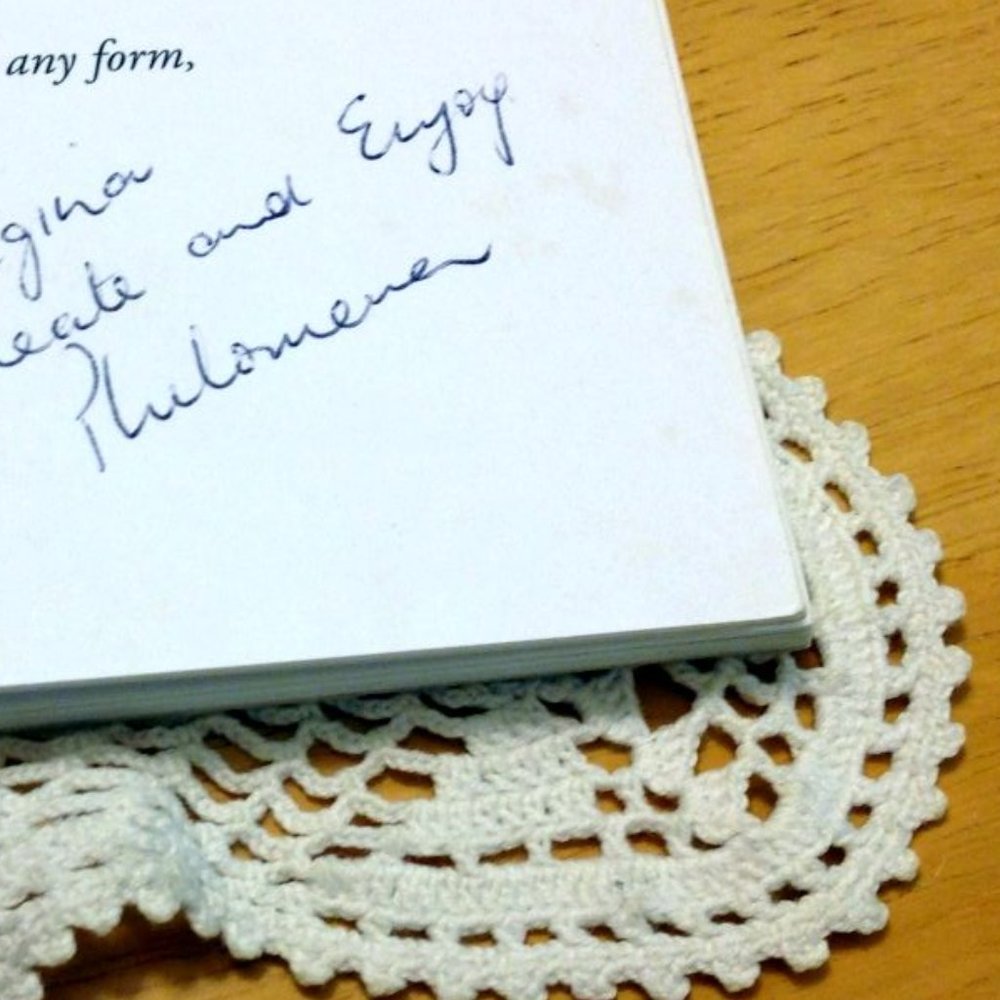 any form,
gina
eate and Enjoy
Philomena